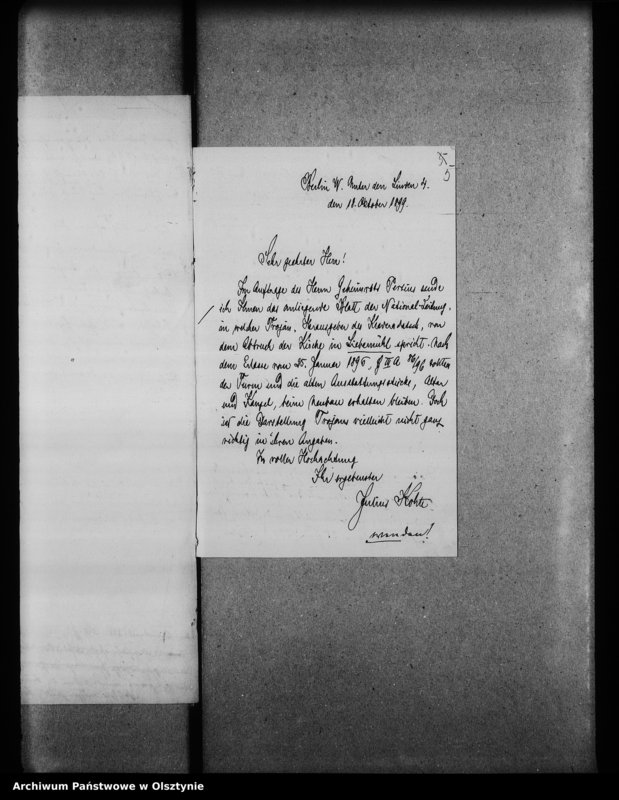 5
Berlin W. Unter den Linden 4.
den 18. Oktober 1899.
Sehr geehrter Herr!
Im Auftrage des Herrn Geheimrats Persius sende
ich Ihnen das anliegende Blatt der National-Zeitung,
in welcher Trojan, Herausgeber des Kladderadatsch, von
dem Abbruch der Kirche in Liebemühl spricht. Nach
dem Erlasse vom 25. Januar 1896, G III A 86/96 sollten
der Turm und die alten Ausstattungsstücke, Altar
und Kanzel, beim Neubau erhalten bleiben. Doch
ist die Darstellung Trojans vielleicht nicht ganz
richtig in ihren Angaben.
In voller Hochachtung
Ihr ergebenster
Julius Kohte
wenden!
Archiwum Państwowe w Olsztynie